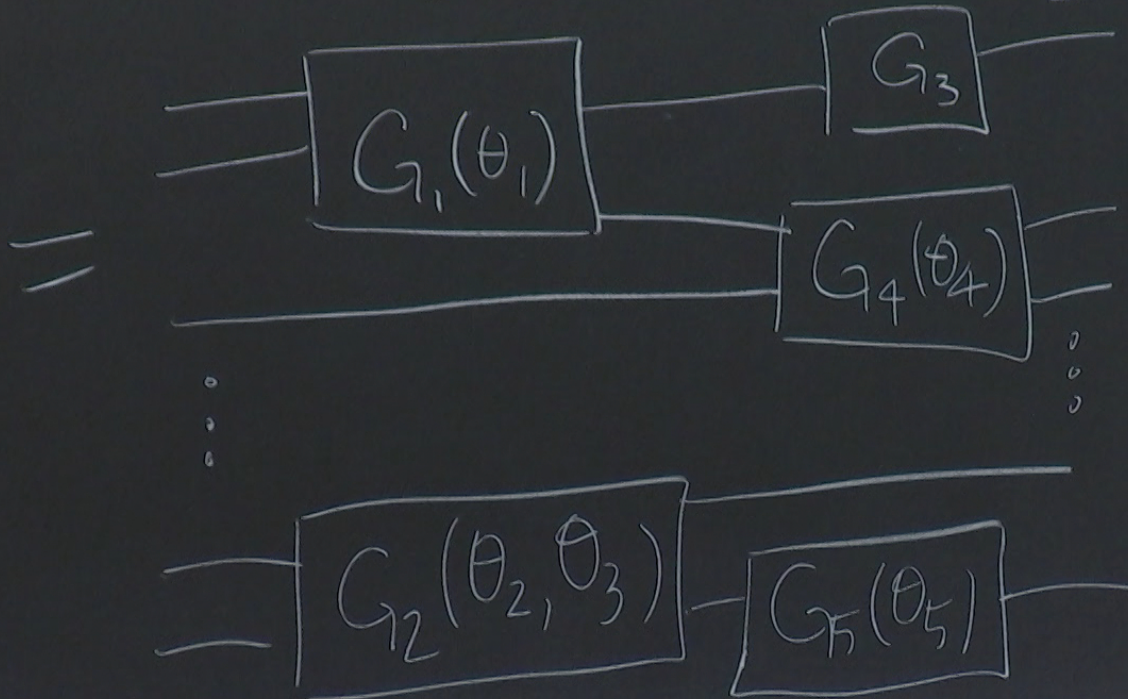 G₃
G₁(θ₁)
=
G₄(θ₄)
G₂(θ₂, θ₃)
G₅(θ₅)